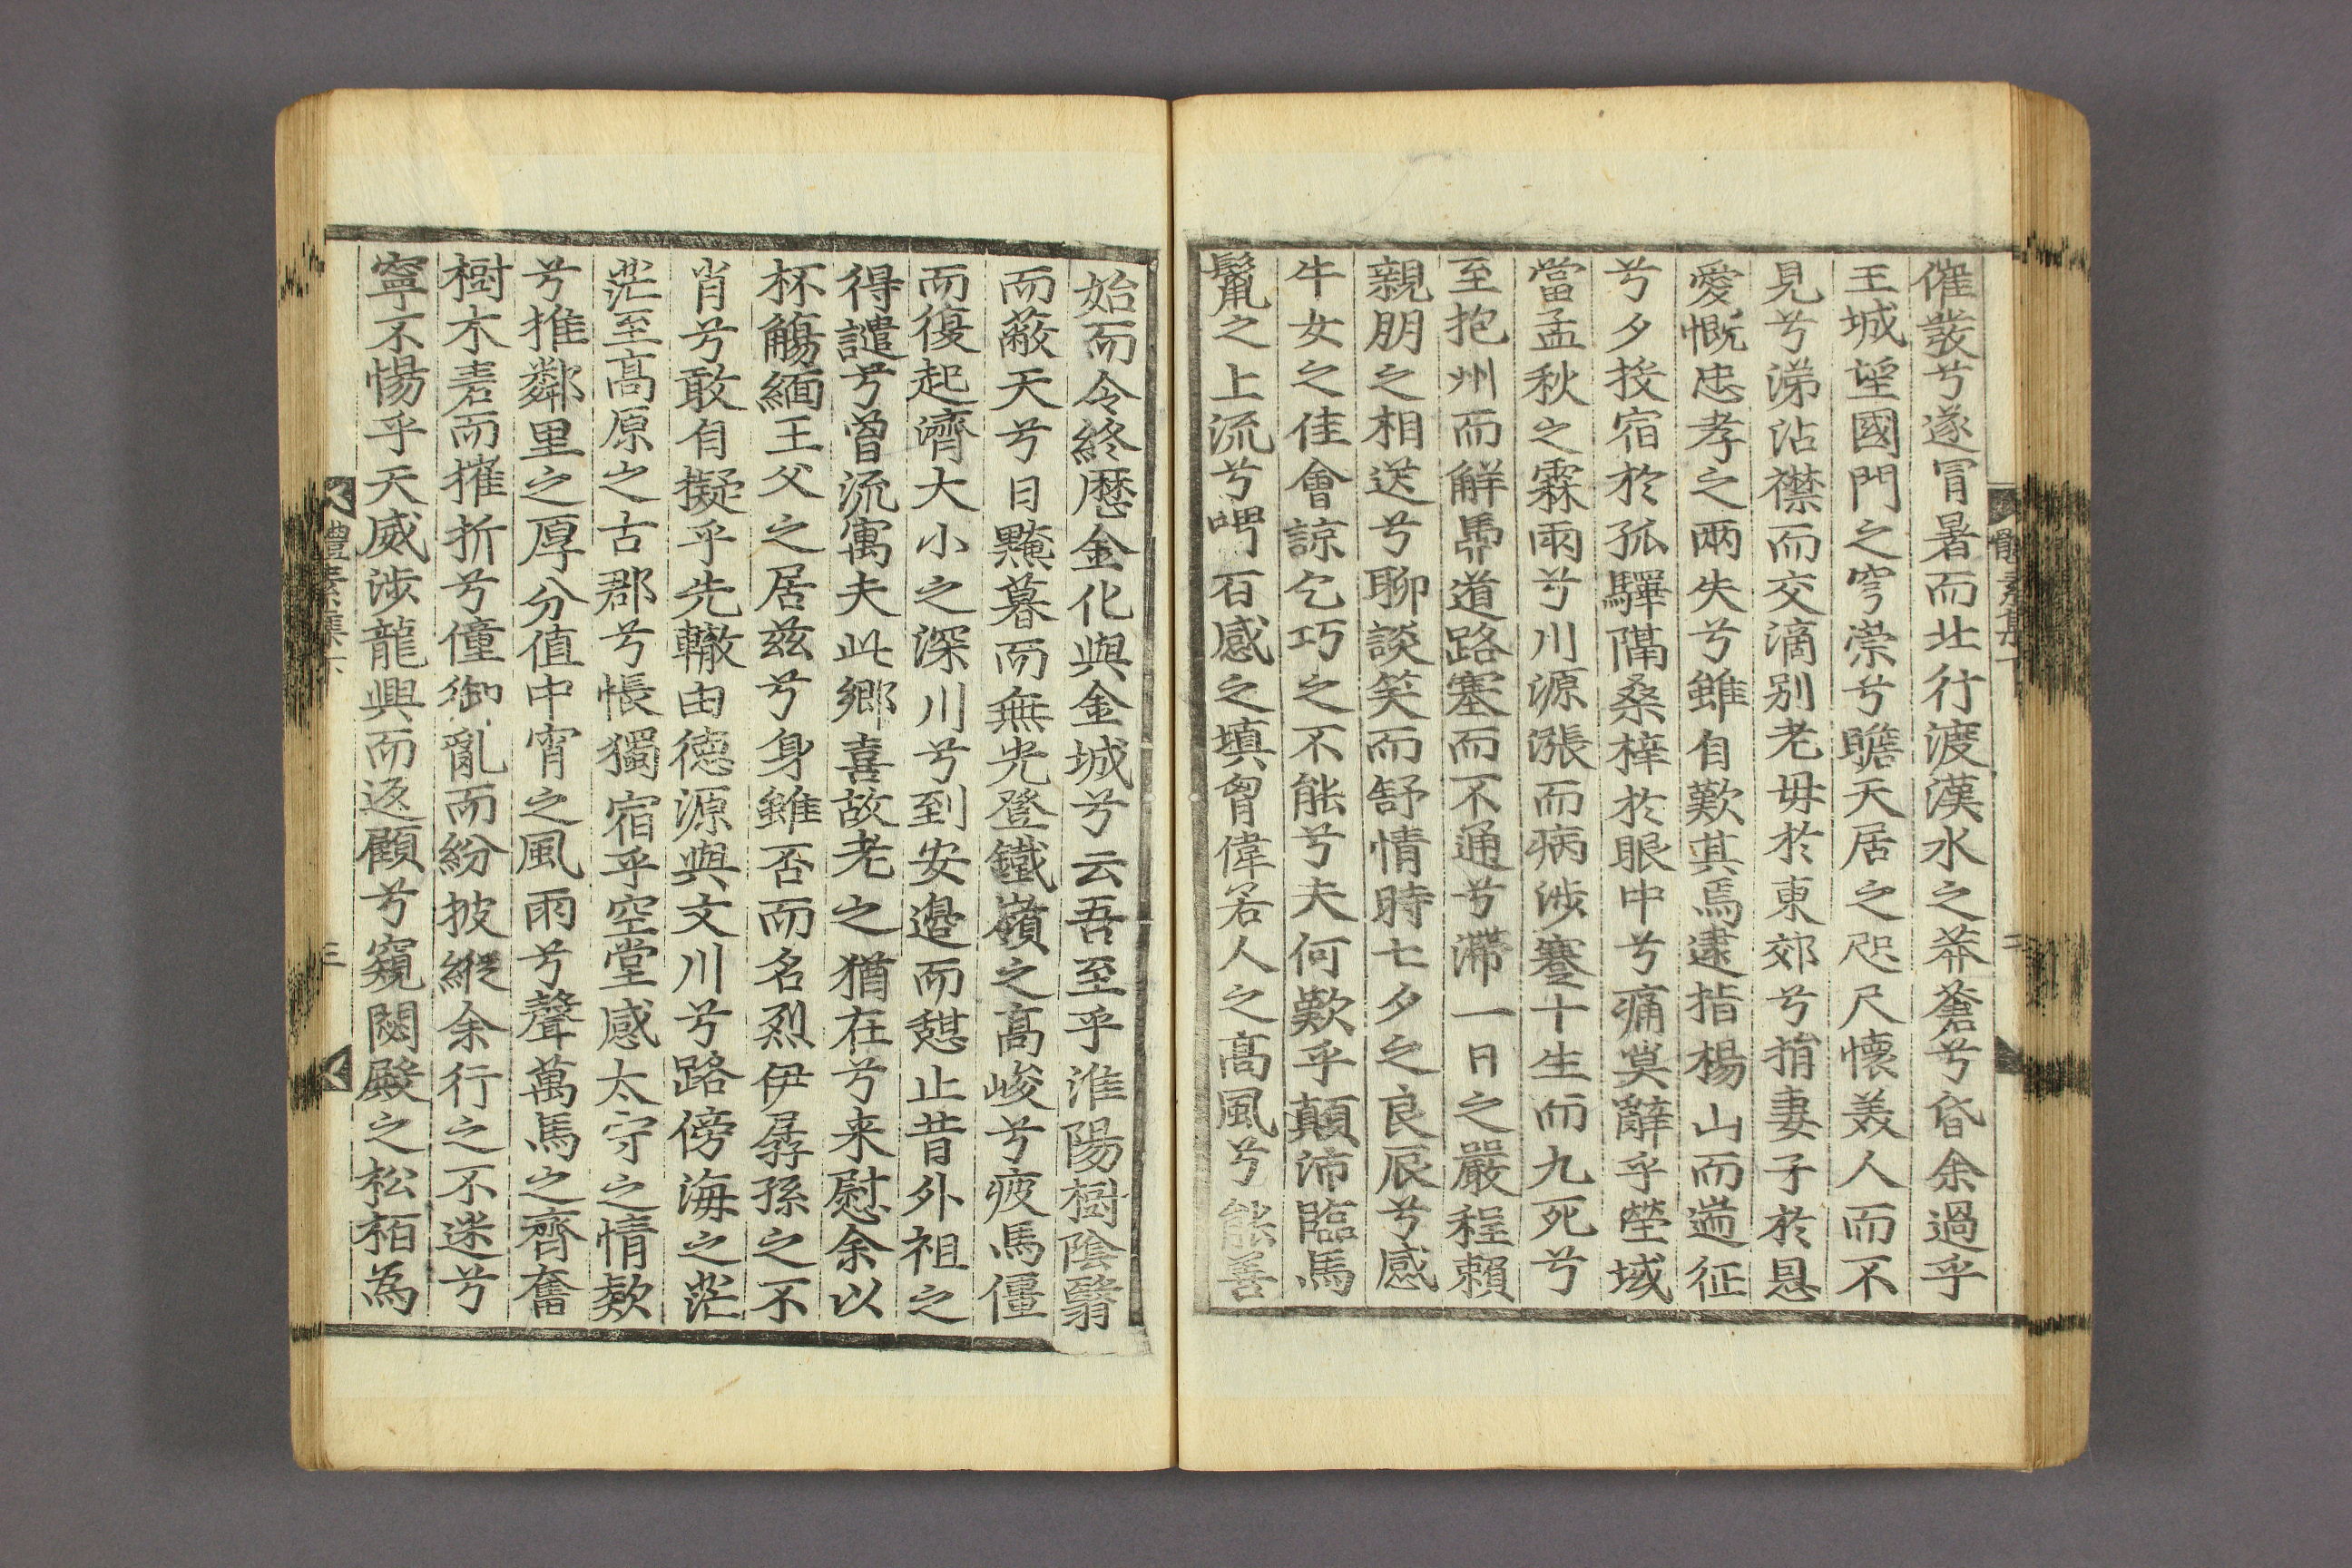 催發兮遂冒暑而北行渡漢水之莽蒼兮昏余過乎
王城望國門之穹崇兮瞻天居之咫尺懷美人而不
見兮涕沾襟而交滴別老毋於東郊兮捐妻子於恩
愛慨忠孝之兩失兮雖自歎其焉逮指楊山而遄征
兮夕投宿於孤驛隔桑梓於眼中兮痛莫辭乎塋域
當孟秋之霖雨兮川源漲而病涉蹇十生而九死兮
至抱州而觧鞿道路塞而不通兮滯一日之嚴程賴
親朋之相送兮聊談笑而舒情時七夕之良辰兮感
牛女之佳會諒乞巧之不能兮夫何歎乎顛沛臨馬
鬣之上流兮喟石感之填胷偉若人之高風兮能善
體素集下
二
始而令終歷金化與金城兮云吾至乎淮陽樹陰翳
而蔽天兮日黤暮而無光登鐵嶺之高峻兮疲馬僵
而復起濟大小之深川兮到安邉而憇止昔外祖之
得譴兮曾流寓夫此鄉喜故老之猶在兮来慰余以
杯觴緬王父之居玆兮身雖否而名烈伊孱孫之不
肖兮敢自擬乎先轍由德源與文川兮路傍海之茫
茫至高原之古郡兮悵獨宿乎空堂感太守之情欵
兮推鄰里之厚分值中宵之風雨兮聲萬馬之齊奮
樹木砉而摧折兮僮御亂而紛披縱余行之不迷兮
寧不惕乎天威涉龍興而返顧兮窺閟殿之松栢為
體素集下
三